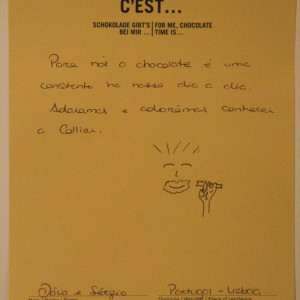 C'EST...
SCHOKOLADE GIBT'S | FOR ME, CHOCOLATE
BEI MIR ... | TIME IS...
Para nós o chocolate é uma
constante no nosso dia a dia.
Adoramos e adorámos conhecer
a Callier.
e Sérgio
Portugal - Lisboa